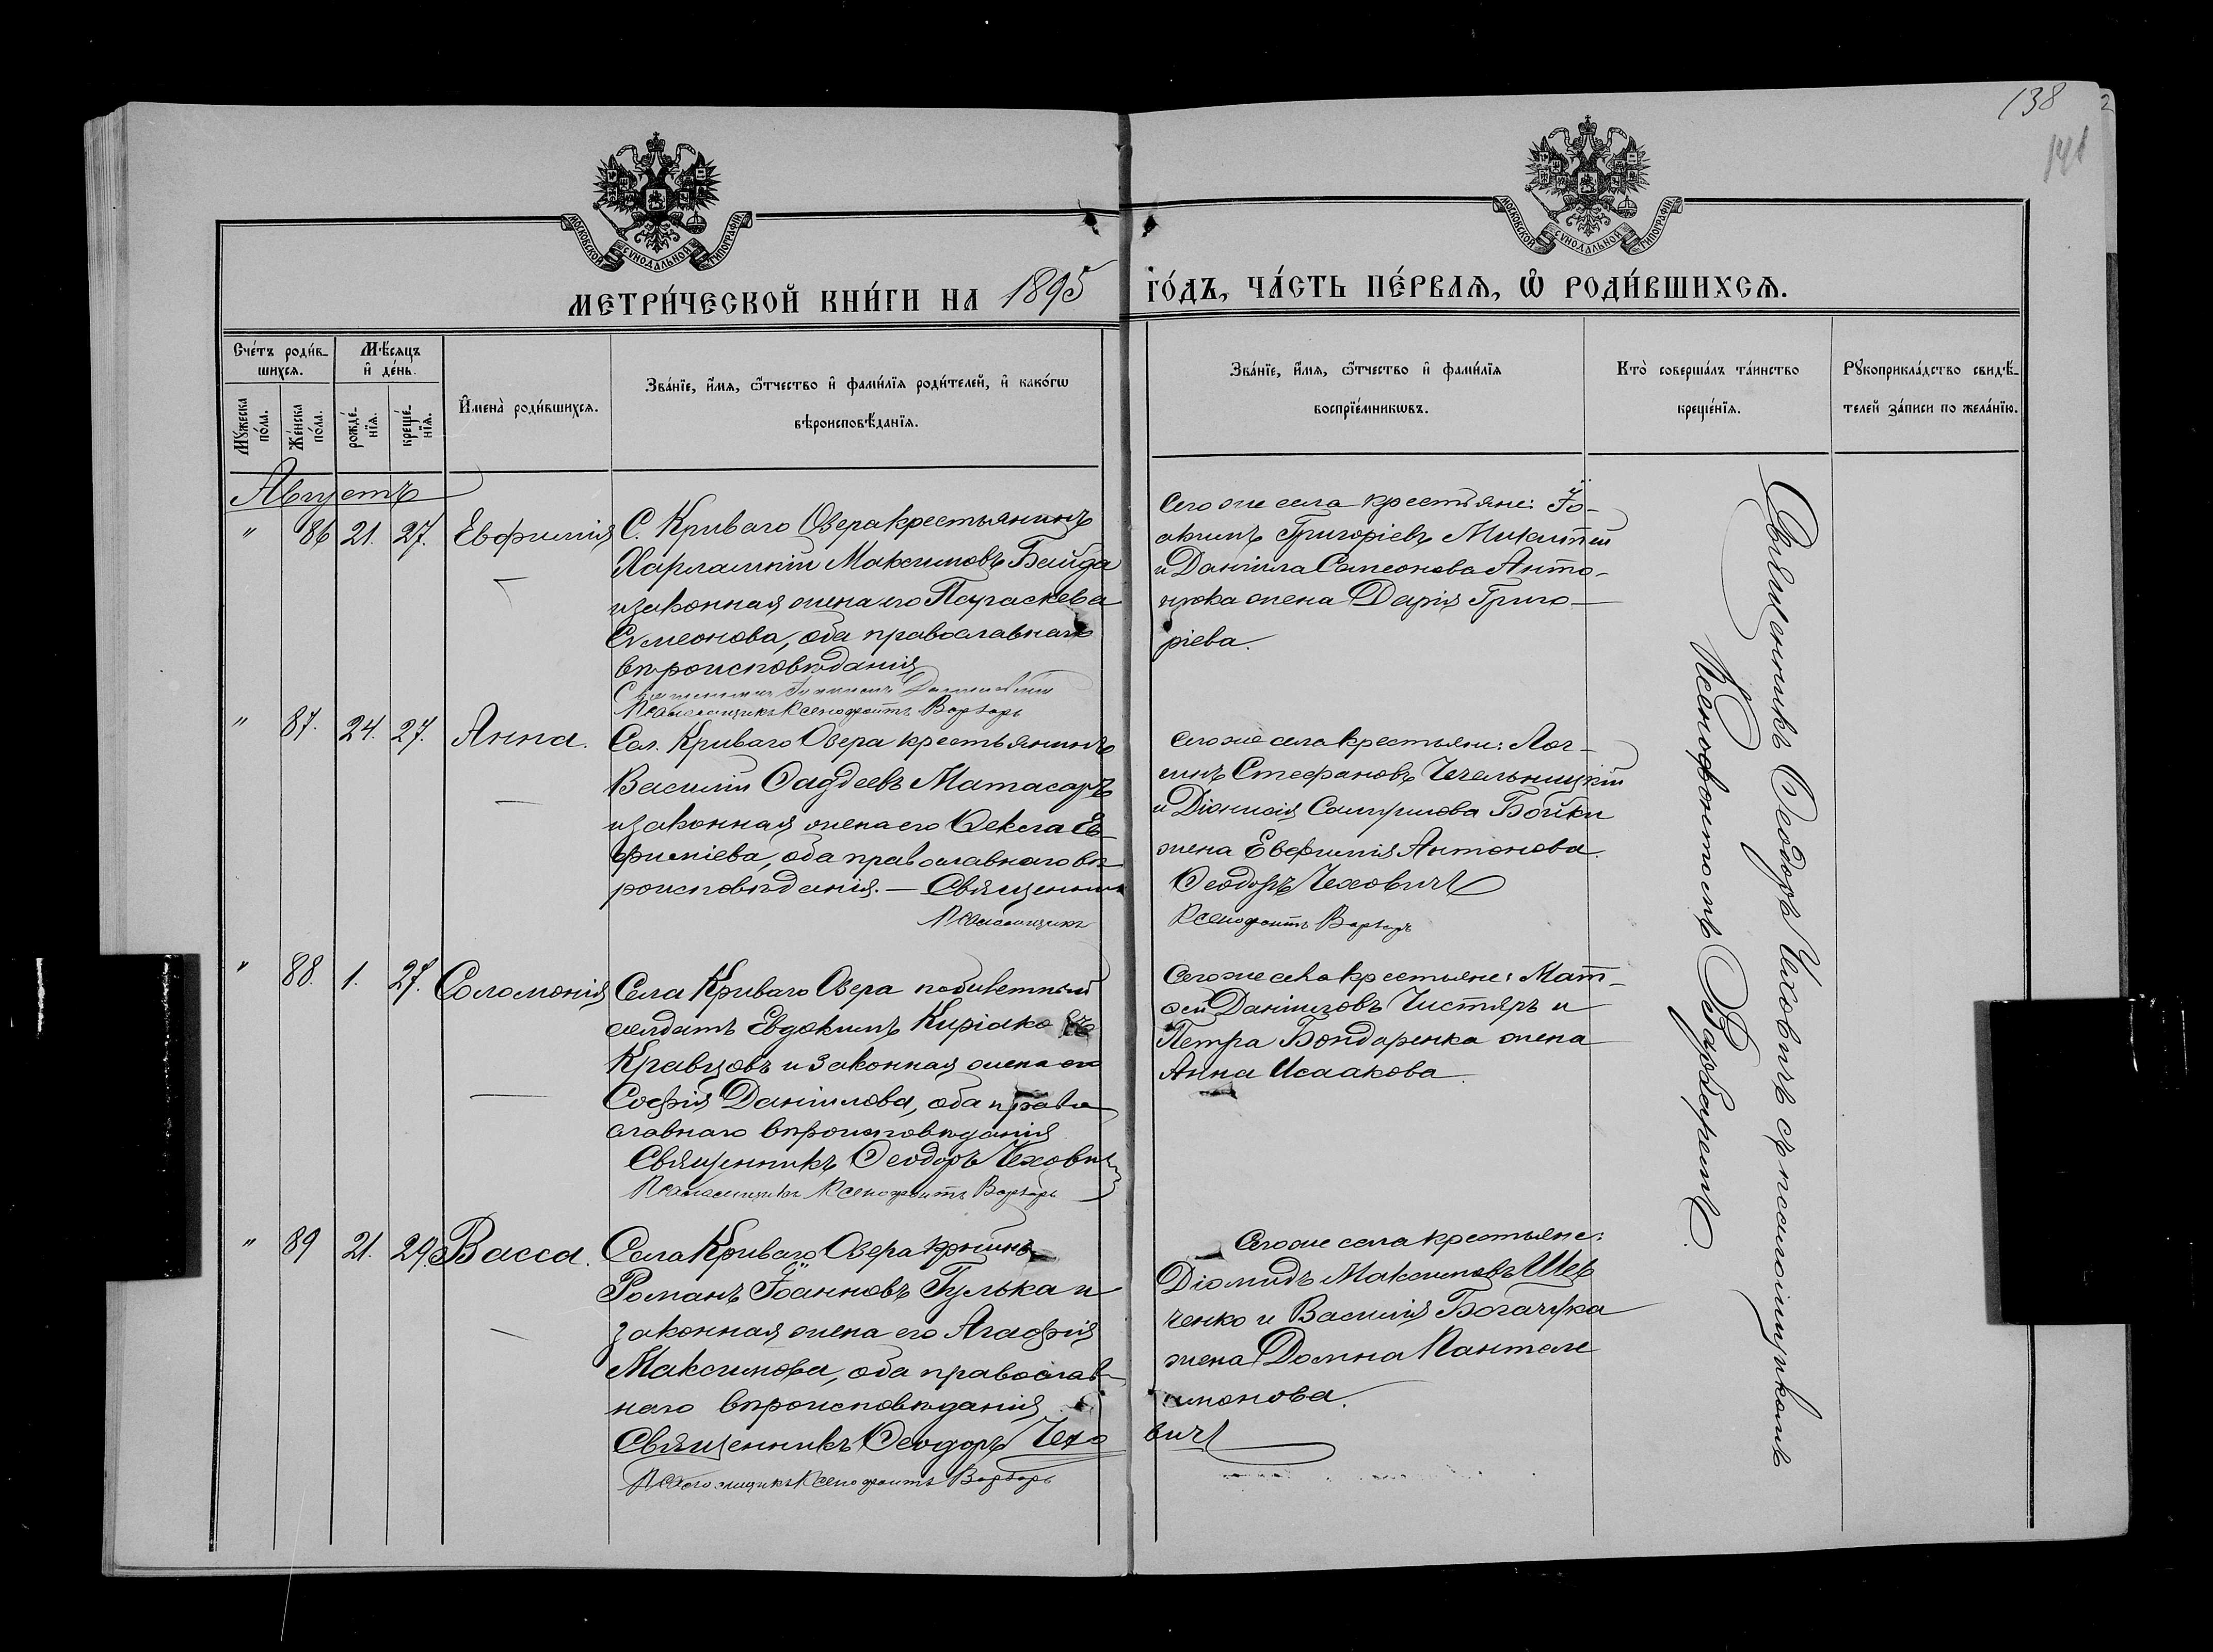 138
141
МОСКОВСКОЙ СѴНОДАЛЬНОЙ ТИПОГРАФІИ
МОСКОВСКОЙ СѴНОДАЛЬНОЙ ТИПОГРАФІИ
МЕТРИ́ЧЕСКОЙ КНИ́ГИ НА 1895 ГО́ДЪ, ЧА́СТЬ ПЕ́РВАЯ, Ѡ РОДИ́ВШИХСЯ.
Сче́тъ роди́в-
шихся.
Мѣ́сяцъ
и҆ де́нь.
Мꙋ́жеска
по́ла.
Же́нска
по́ла.
рожде́-
нїя.
креще́-
нїя.
И҆мена̀ роди́вшихся.
Зва́нїе, и҆́мя, ѻ҆́тчество и҆ фами́лїя роди́телей, и҆ како́гѡ
вѣроисповѣ́данїя.
Зва́нїе, и҆́мя, ѻ҆́тчество и҆ фами́лїя
воспрїе́мникѡвъ.
Кто̀ соверша́лъ та́инство
креще́нїя.
Рꙋкоприкла́дство свидѣ́-
телей за́писи по жела́нїю.
Августъ
" 86 21. 27. Евфимія
С. Криваго Озера крестьянинъ
Харлампій Максимовъ Байда
и законная жена его Параскева
Сѵмеонова, оба православнаго
вѣроисповѣданія
Священникъ Іоаннъ
Псаломщикъ Ксенофонтъ Варваръ
Сего же села крестьяне: Іо-
акимъ Григоріевъ Микитей
и Даніила Симеонова Анто-
нюка жена Дарія Григо-
ріева.
" 87. 24. 27. Анна.
Сел. Криваго Озера крестьянинъ
Василій Фаддеевъ Матасаръ
и законная жена его Ѳекла Ев-
фиміева, оба православнаго вѣ-
роисповѣданія. — Священникъ
Псаломщикъ
Сего же села крестьяне: Лог-
гинъ Стефановъ Чечельницкій
и Діонисія Самуилова Бойки
жена Евфимія Антонова.
Ѳеодоръ Чеховичъ
Ксенофонтъ Варваръ
" 88. 1. 27. Соломонія
Села Криваго Озера побилетный
солдатъ Евдокимъ Киріаковъ
Кравцовъ и законная жена его
Софія Даніилова, оба право
славнаго вѣроисповѣданія
Священникъ Ѳеодоръ Чеховичъ
Псаломщикъ Ксенофонтъ Варваръ
Сего же села крестьяне: Мат-
ѳей Даніиловъ Чистяръ и
Петра Бондаренка жена
Анна Исаакова.
" 89 21. 29. Васса.
Села Криваго Озера крнинъ
Романъ Іоанновъ Гулька и
законная жена его Агафія
Максимова, оба православ-
наго вѣроисповѣданія
Священникъ Ѳеодоръ Чехо
вичъ
Псаломщикъ Ксенофонтъ Варваръ
Сего же села крестьяне:
Діомидъ Максимовъ Шев
ченко и Василія Богачука
жена Домна Пантеле
имонова.
Священникъ Ѳеодоръ Чеховичъ съ псаломщикомъ
Ксенофонтомъ Варваромъ.